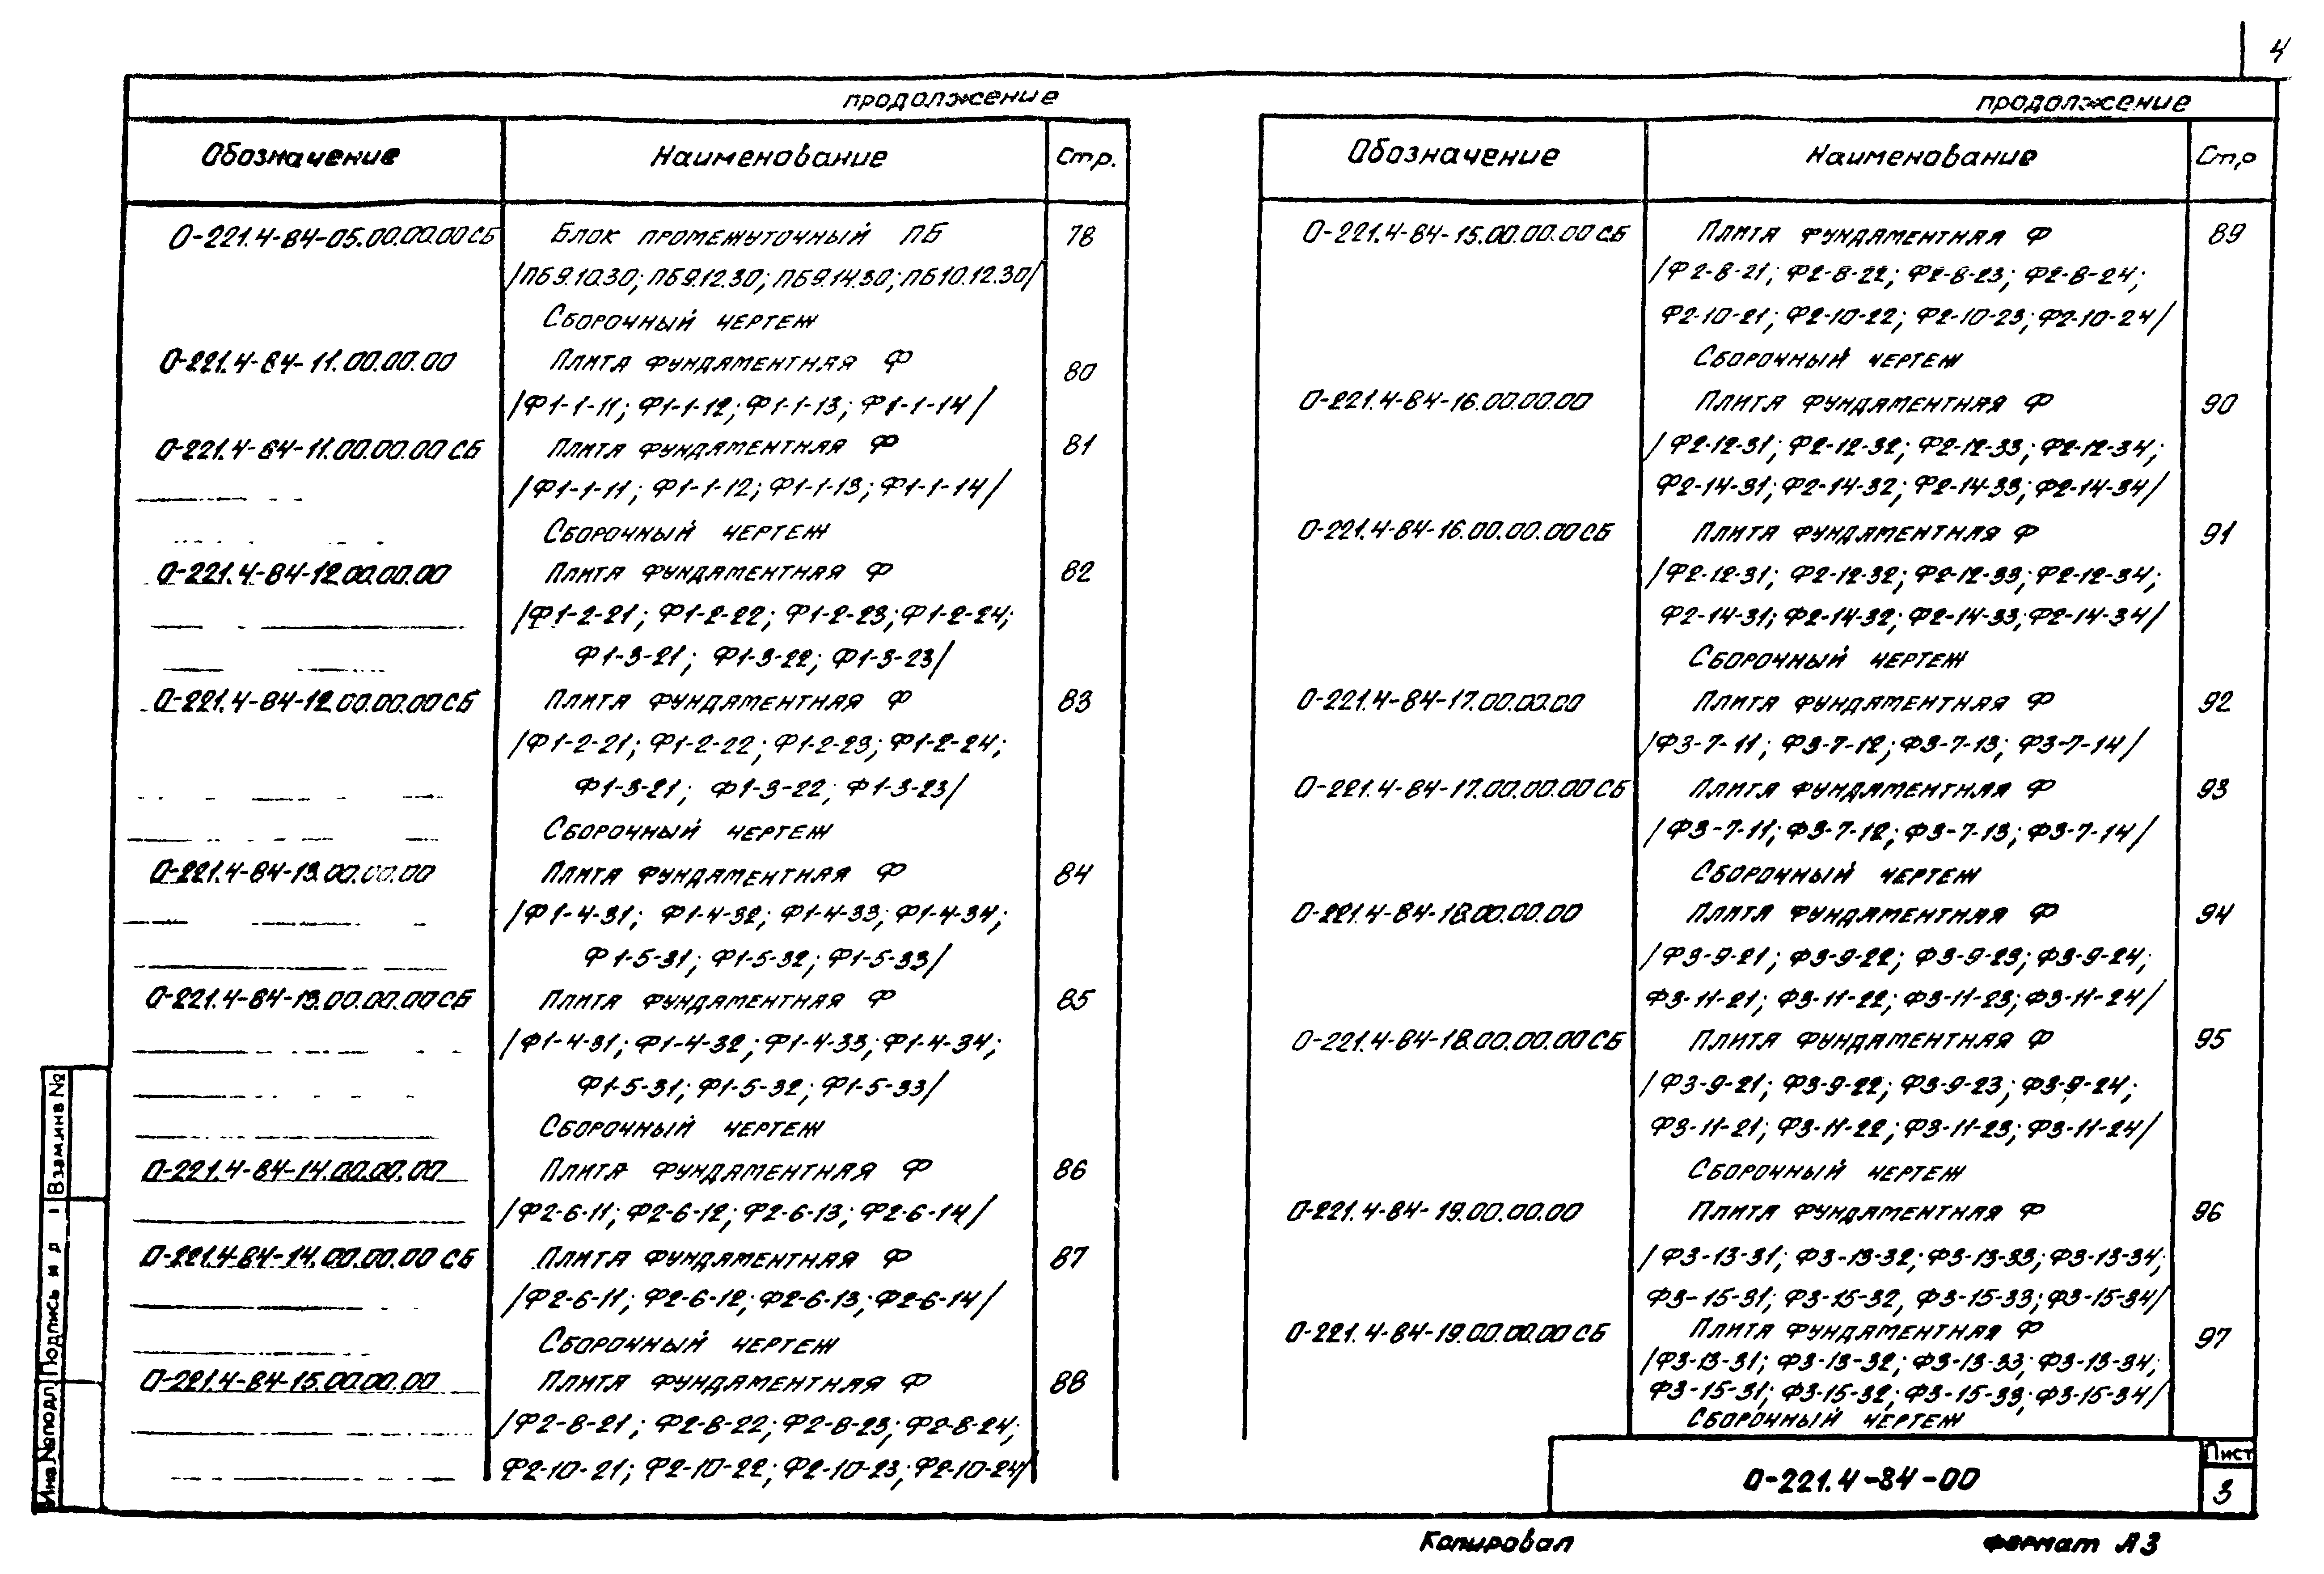 4
продолжение
Обозначение Наименование Стр.
О-221.4-84-05.00.00.00 СБ Блок промежуточный ПБ 78
/ПБ9.10.30; ПБ9.12.30; ПБ9.14.30; ПБ10.12.30/
Сборочный чертеж
О-221.4-84-11.00.00.00 Плита фундаментная Ф 80
/Ф1-1-11; Ф1-1-12; Ф1-1-13; Ф1-1-14/
О-221.4-84-11.00.00.00 СБ Плита фундаментная Ф 81
/Ф1-1-11; Ф1-1-12; Ф1-1-13; Ф1-1-14/
Сборочный чертеж
О-221.4-84-12.00.00.00 Плита фундаментная Ф 82
/Ф1-2-21; Ф1-2-22; Ф1-2-23; Ф1-2-24;
Ф1-3-21; Ф1-3-22; Ф1-3-23/
О-221.4-84-12.00.00.00 СБ Плита фундаментная Ф 83
/Ф1-2-21; Ф1-2-22; Ф1-2-23; Ф1-2-24;
Ф1-3-21; Ф1-3-22; Ф1-3-23/
Сборочный чертеж
О-221.4-84-13.00.00.00 Плита фундаментная Ф 84
/Ф1-4-31; Ф1-4-32; Ф1-4-33; Ф1-4-34;
Ф1-5-31; Ф1-5-32; Ф1-5-33/
О-221.4-84-13.00.00.00 СБ Плита фундаментная Ф 85
/Ф1-4-31; Ф1-4-32; Ф1-4-33; Ф1-4-34;
Ф1-5-31; Ф1-5-32; Ф1-5-33/
Сборочный чертеж
О-221.4-84-14.00.00.00 Плита фундаментная Ф 86
/Ф2-6-11; Ф2-6-12; Ф2-6-13; Ф2-6-14/
О-221.4-84-14.00.00.00 СБ Плита фундаментная Ф 87
/Ф2-6-11; Ф2-6-12; Ф2-6-13; Ф2-6-14/
Сборочный чертеж
О-221.4-84-15.00.00.00 Плита фундаментная Ф 88
/Ф2-8-21; Ф2-8-22; Ф2-8-23; Ф2-8-24;
Ф2-10-21; Ф2-10-22; Ф2-10-23; Ф2-10-24/
продолжение
Обозначение Наименование Стр
О-221.4-84-15.00.00.00 СБ Плита фундаментная Ф 89
/Ф2-8-21; Ф2-8-22; Ф2-8-23; Ф2-8-24;
Ф2-10-21; Ф2-10-22; Ф2-10-23; Ф2-10-24/
Сборочный чертеж
О-221.4-84-16.00.00.00 Плита фундаментная Ф 90
/Ф2-12-31; Ф2-12-32; Ф2-12-33; Ф2-12-34;
Ф2-14-31; Ф2-14-32; Ф2-14-33; Ф2-14-34/
О-221.4-84-16.00.00.00 СБ Плита фундаментная Ф 91
/Ф2-12-31; Ф2-12-32; Ф2-12-33; Ф2-12-34;
Ф2-14-31; Ф2-14-32; Ф2-14-33; Ф2-14-34/
Сборочный чертеж
О-221.4-84-17.00.00.00 Плита фундаментная Ф 92
/Ф3-7-11; Ф3-7-12; Ф3-7-13; Ф3-7-14/
О-221.4-84-17.00.00.00 СБ Плита фундаментная Ф 93
/Ф3-7-11; Ф3-7-12; Ф3-7-13; Ф3-7-14/
Сборочный чертеж
О-221.4-84-18.00.00.00 Плита фундаментная Ф 94
/Ф3-9-21; Ф3-9-22; Ф3-9-23; Ф3-9-24;
Ф3-11-21; Ф3-11-22; Ф3-11-23; Ф3-11-24/
О-221.4-84-18.00.00.00 СБ Плита фундаментная Ф 95
/Ф3-9-21; Ф3-9-22; Ф3-9-23; Ф3-9-24;
Ф3-11-21; Ф3-11-22; Ф3-11-23; Ф3-11-24/
Сборочный чертеж
О-221.4-84-19.00.00.00 Плита фундаментная Ф 96
/Ф3-13-31; Ф3-13-32; Ф3-13-33; Ф3-13-34;
Ф3-15-31; Ф3-15-32, Ф3-15-33; Ф3-15-34/
О-221.4-84-19.00.00.00 СБ Плита фундаментная Ф 97
/Ф3-13-31; Ф3-13-32; Ф3-13-33; Ф3-13-34;
Ф3-15-31; Ф3-15-32; Ф3-15-33; Ф3-15-34/
Сборочный чертеж
О-221.4-84-00
Лист
3
Копировал Формат А3
Взам.инв.№
Подпись и д
Инв.№подл